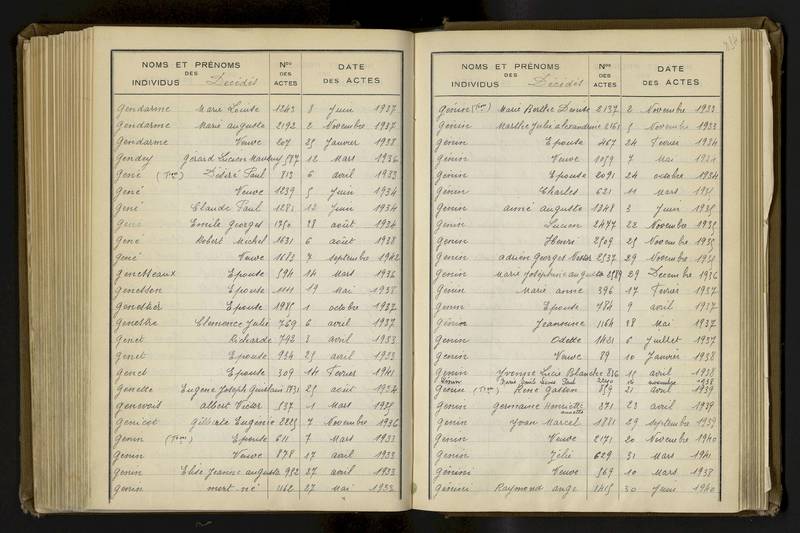 NOMS ET PRÉNOMS DES INDIVIDUS Décédés Nos DES ACTES DATE DES ACTES
Gendarme Marie Louise 1243 8 Juin 1937
Gendarme Marie augusta 2192 2 Novembre 1937
Gendarme Veuve 207 25 Janvier 1938
Gendey Gérard Lucien 587 12 Mars 1936
Gené Désiré Paul 813 6 avril 1933
Gené Veuve 1239 5 Juin 1934
Gené Claude Paul 1281 12 Juin 1934
Gené Emile Georges 1750 28 août 1934
Gené Robert Michel 1631 6 août 1938
Gené Veuve 1683 7 septembre 1942
Genetteaux Epouse 594 14 Mars 1936
Genesson Epouse 1111 19 Mai 1938
Epouse 1985 1 octobre 1937
Genestre Clémence Julie 769 6 avril 1937
Genet Richarde 793 3 avril 1933
Genet Epouse 934 25 avril 1933
Genet Epouse 309 14 Fevrier 1941
Genette Eugène Joseph 1731 25 août 1934
Genevois albert Victor 537 1 Mars 1935
Genicot Eugénie 2225 7 Novembre 1936
Genin Epouse 611 7 Mars 1933
Genin Veuve 878 17 avril 1933
Genin Elise Jeanne augusta 952 27 avril 1933
Genin mort né 1162 27 Mai 1933
NOMS ET PRÉNOMS DES INDIVIDUS Décédés Nos DES ACTES DATE DES ACTES
Génin Marie Berthe 2137 2 Novembre 1933
Génin Marthe Julie alexandrine 2161 5 Novembre 1933
Genin Epouse 467 24 Fevrier 1934
Genin Veuve 1059 7 Mai 1934
Génin Epouse 2091 24 octobre 1934
Génin Charles 631 11 Mars 1935
Genin aimé auguste 1248 3 Juin 1935
Genin Lucien 2477 22 Novembre 1935
Genin Henri 2509 25 Novembre 1935
Genin adrien Georges 2537 29 Novembre 1935
Genin Marie Joséphine augusta 2589 29 Decembre 1936
Genin Marie anne 396 17 Fevrier 1937
Genin Epouse 784 9 avril 1937
Génin Jeannine 1164 28 Mai 1937
Genin Odette 1421 6 Juillet 1937
Genin Veuve 89 10 Janvier 1938
Genin Yvonne Lucie Blanche 836 15 avril 1938
Genin novembre 1938
Genin René Gaston 859 21 avril 1939
Genin Germaine Henriette 871 23 avril 1939
Genin Marcel 1881 29 septembre 1939
Genin Veuve 2171 20 Novembre 1940
Genin 629 31 Mars 1941
Génini Veuve 569 10 Mars 1938
Génini Raymond ange 1415 30 Juin 1940